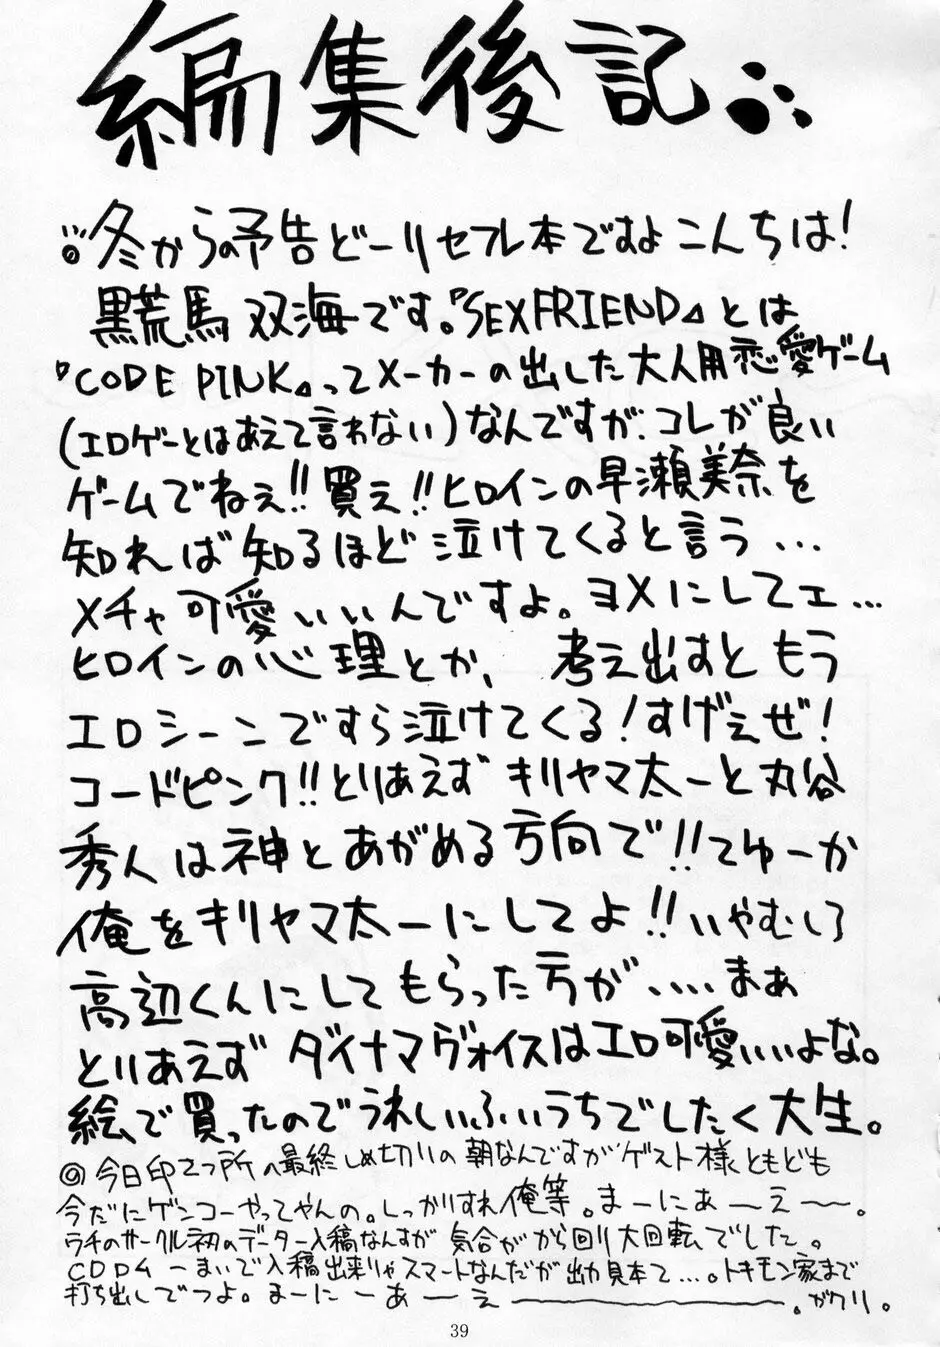 編集後記
◎冬からの予告どーりセフレ本ですよこんちは!
黒荒馬双海です。『SEXFRIEND』とは
『CODE PINK』ってメーカーの出した大人用恋愛ゲーム
(エロゲーとはあえて言わない)なんですが、コレが良い
ゲームでねぇ!!買え!!ヒロインの早瀬美奈を
知れば知るほど泣けてくると言う…
メチャ可愛いいんですよ。ヨメにしてェ…
ヒロインの心理とか、考え出すともう
エロシーンですら泣けてくる!すげぇぜ!
コードピンク!!とりあえずキリヤマ太一と丸谷
秀人は神とあがめる方向で!!てゆーか
俺をキリヤマ太一にしてよ!!いやむしろ
高辺くんにしてもらった方が……まぁ
とりあえずダイナマヴォイスはエロ可愛いいよな。
絵で買ったのでうれしいふいうちでしたく大生。
◎今日印さつ所の最終しめ切りの朝なんですがゲスト様ともども
今だにゲンコーやってやんの。しっかりすれ俺等。まーにぁーえー〜。
ウチのサークル初のデーター入稿なんすが気合がから回り大回転でした。
CD一まいで入稿出来りゃスマートなんだが出力見本て…。トキモン家まで
打ち出しでつよ。まーにーあーえー。ガクリ。
39